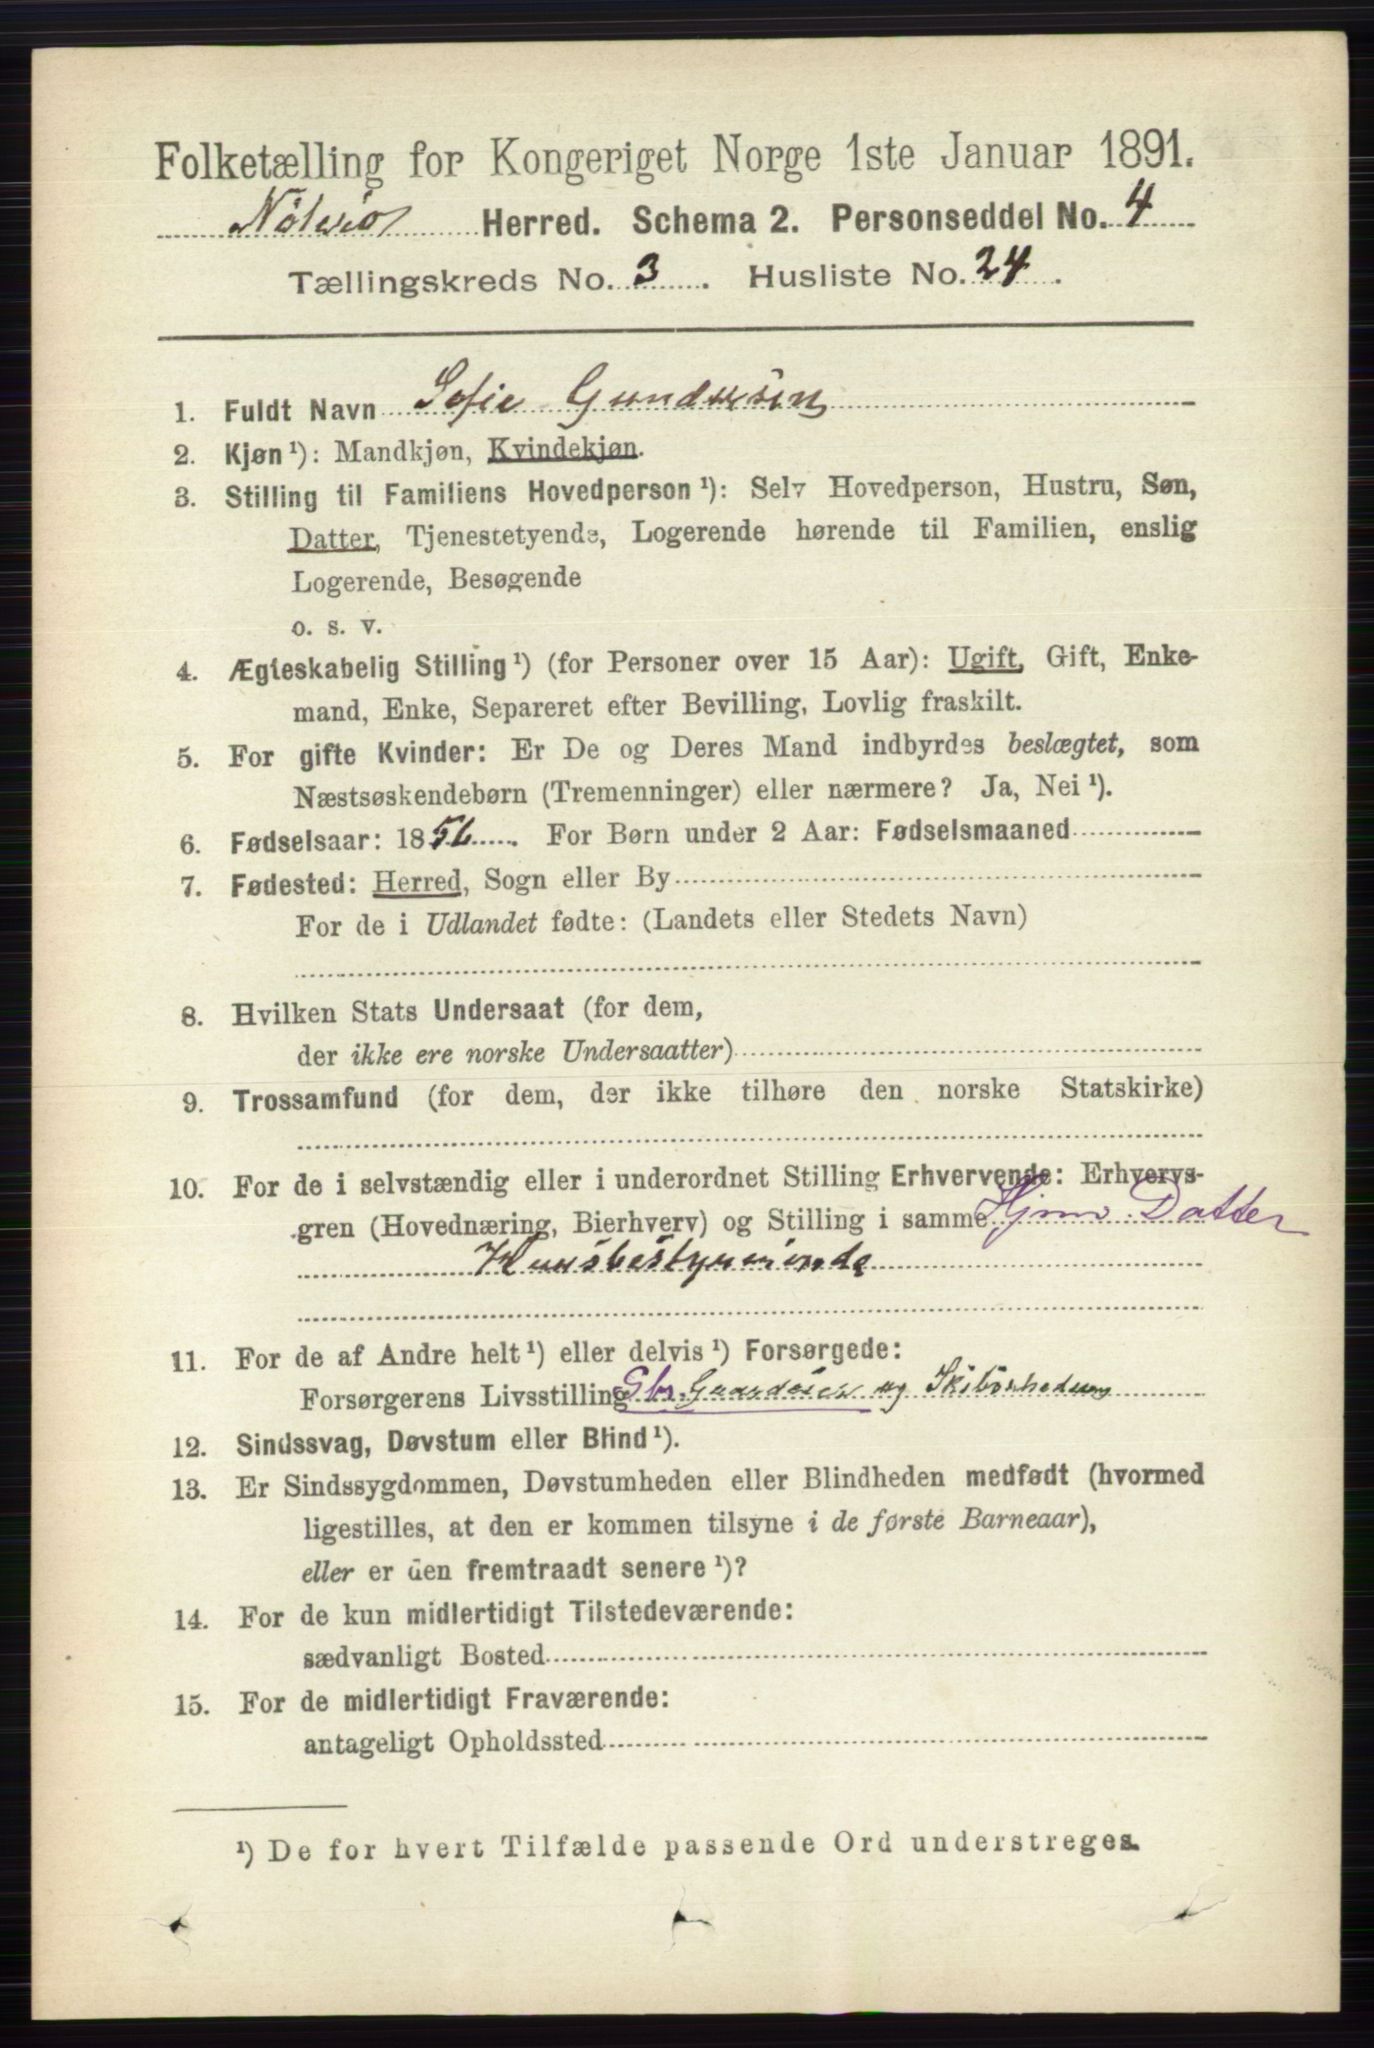 Folketælling for Kongeriget Norge 1ste Januar 1891.
Nøterø Herred. Schema 2. Personseddel No. 4
Tællingskreds No. 3. Husliste No. 24.
1. Fuldt Navn Sofie Gundersen
2. Kjøn ¹): Mandkjøn, Kvindekjøn.
3. Stilling til Familiens Hovedperson ¹): Selv Hovedperson, Hustru, Søn,
Datter, Tjenestetyende, Logerende hørende til Familien, enslig
Logerende, Besøgende
o. s. v.
4. Ægteskabelig Stilling ¹) (for Personer over 15 Aar): Ugift, Gift, Enke-
mand, Enke, Separeret efter Bevilling, Lovlig fraskilt.
5. For gifte Kvinder: Er De og Deres Mand indbyrdes beslægtet, som
Næstsøskendebørn (Tremenninger) eller nærmere? Ja, Nei ¹).
6. Fødselsaar: 1856. For Børn under 2 Aar: Fødselsmaaned
7. Fødested: Herred, Sogn eller By
For de i Udlandet fødte: (Landets eller Stedets Navn)
8. Hvilken Stats Undersaat (for dem,
der ikke ere norske Undersaatter)
9. Trossamfund (for dem, der ikke tilhøre den norske Statskirke)
10. For de i selvstændig eller i underordnet Stilling Erhvervende: Erhvervs-
gren (Hovednæring, Bierhverv) og Stilling i samme Hjmv Datter
Huusbestyrerinde
11. For de af Andre helt ¹) eller delvis ¹) Forsørgede:
Forsørgerens Livsstilling Gbr. Gaardeier og Skibsrheder
12. Sindssvag, Døvstum eller Blind ¹).
13. Er Sindssygdommen, Døvstumheden eller Blindheden medfødt (hvormed
ligestilles, at den er kommen tilsyne i de første Barneaar),
eller er den fremtraadt senere ¹)?
14. For de kun midlertidigt Tilstedeværende:
sædvanligt Bosted
15. For de midlertidigt Fraværende:
antageligt Opholdssted
¹) De for hvert Tilfælde passende Ord understreges.